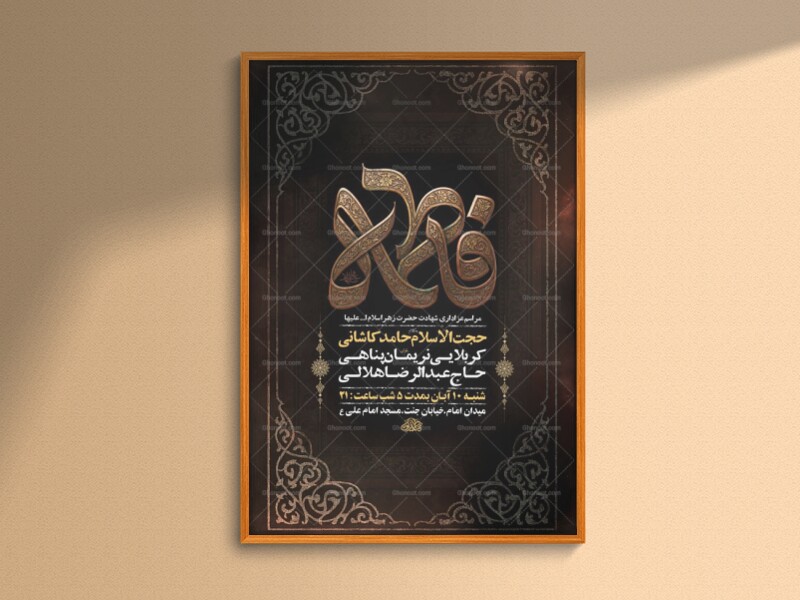 فاطمه
مراسم عزاداری شهادت حضرت زهرا سلام ا... علیها
حجت الاسلام حامد کاشانی
کربلایی نریمان پناهی
حاج عبدالرضا هلالی
شنبه ۱۰ آبان بمدت ۵ شب ساعت : ۲۱
میدان امام، خیابان جنت، مسجد امام علی ع
Ghonoot.com